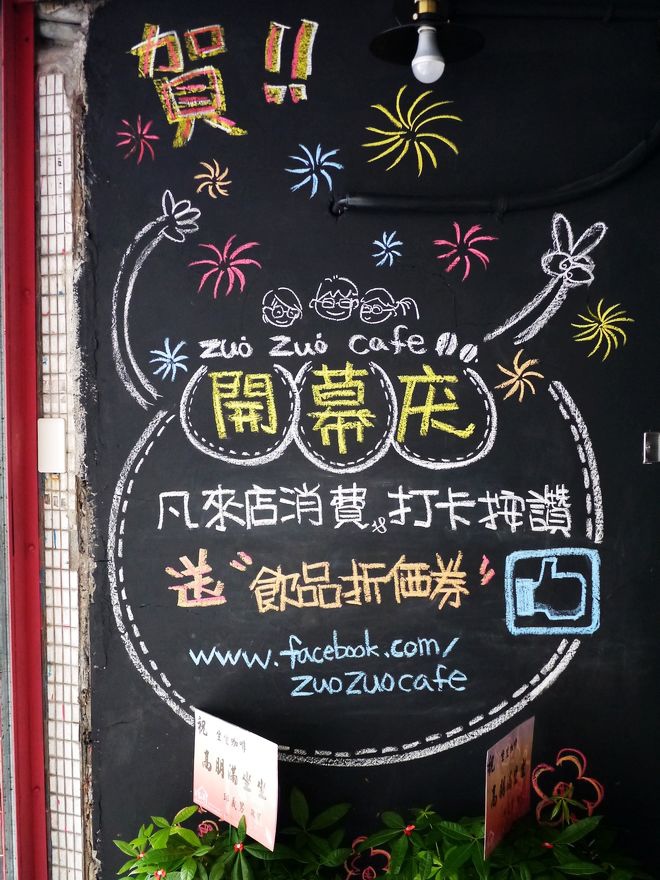 賀!!
zuo zuo cafe
開幕庆
凡來店消費。打卡按讚
送"飲品折価券"
www.facebook.com/
zuozuocafe
祝 坐坐咖啡
高朋滿坐坐
祝
高朋滿坐坐